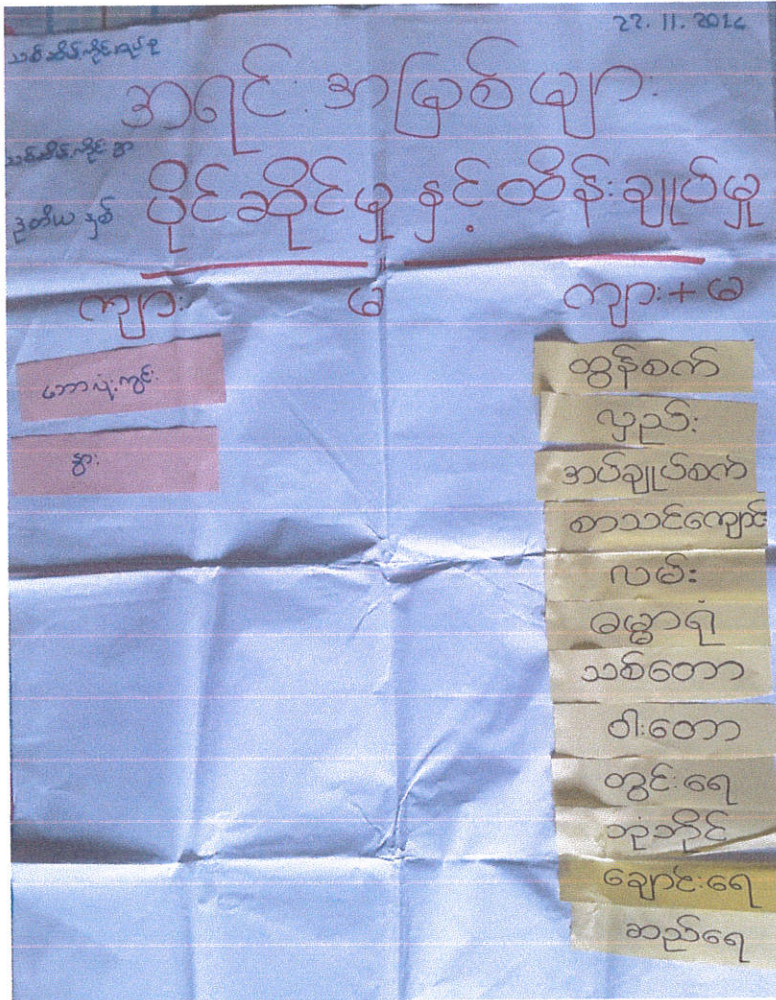 22.11.2014
သစ်ဆိမ့်ကိုင်းအုပ်စု
အရင်းအမြစ်များ
သစ်ဆိမ့်ကိုင်းရွာ
ဒုတိယ နှစ် ပိုင်ဆိုင်မှု နှင့် ထိန်းချုပ်မှု
ကျား မ ကျား+မ
ဘောလုံးကွင်း ထွန်စက်
လှည်း
နွား အပ်ချုပ်စက်
စာသင်ကျောင်း
လမ်း
ဓမ္မာရုံ
သစ်တော
ဝါးတော
တွင်းရေ
ဘုံဘိုင်
ချောင်းရေ
ဆည်ရေ